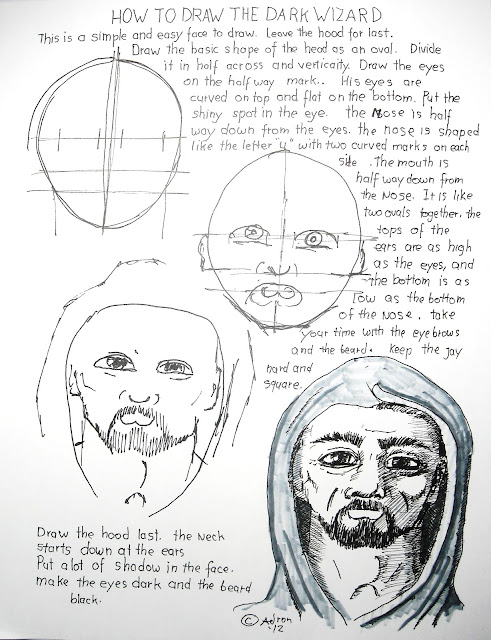 HOW TO DRAW THE DARK WIZARD
This is a simple and easy face to draw. Leave the hood for last.
Draw the basic shape of the head as an oval. Divide
it in half across and verticaity. Draw the eyes
on the half way mark.. His eyes are
curved on top and flat on the bottom. Put the
shiny spot in the eye. the Nose is half
way down from the eyes. the nose is shaped
like the letter "u" with two curved marks on each
side. The mouth is
half way down from
the Nose. It is like
two ovals together. the
tops of the
ears are as high
as the eyes, and
the bottom is as
low as the bottom
of the Nose. take
your time with the eyebrows
and the beard. Keep the jay
hard and
square.
Draw the hood last. the Neck
starts down at the ears
Put a lot of shadow in the face.
make the eyes dark and the beard
black.
© Adron
'12